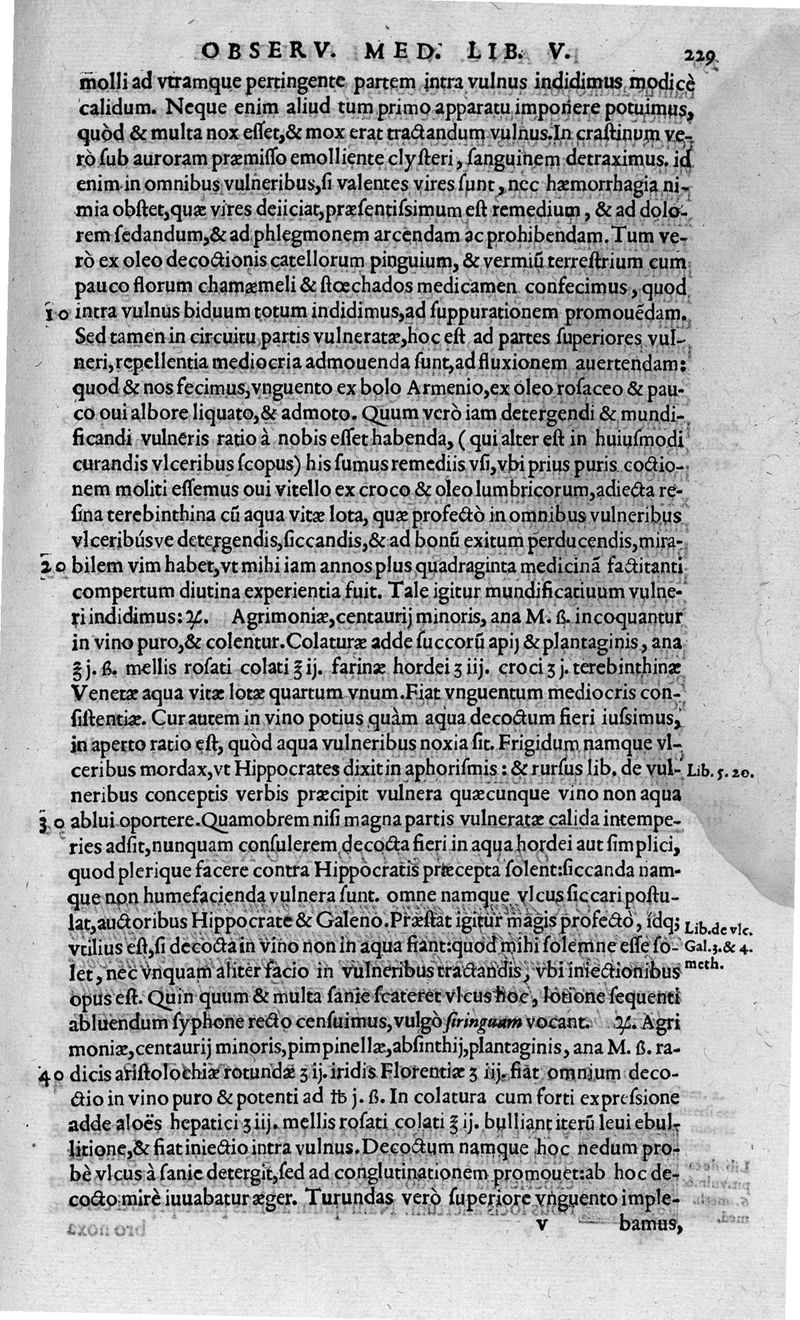 OBSERV. MED. LIB. V. 229
molli ad vtramque pertingente partem intra vulnus indidimus modicè
calidum. Neque enim aliud tum primo apparatu imponere potuimus,
quòd & multa nox eſſet, & mox erat tractandum vulnus. In craſtinum ve-
rò ſub auroram præmiſſo emolliente clyſteri, ſanguinem detraximus. id
enim in omnibus vulneribus, ſi valentes vires ſunt, nec hæmorrhagia ni-
mia obſtet, quæ vires deiiciat, præſentiſsimum eſt remedium, & ad dolo-
rem ſedandum, & ad phlegmonem arcendam ac prohibendam. Tum ve-
rò ex oleo decoctionis catellorum pinguium, & vermiū terreſtrium cum
pauco florum chamæmeli & ſtœchados medicamen confecimus, quod
10 intra vulnus biduum totum indidimus, ad ſuppurationem promouẽdam.
Sed tamen in circuitu partis vulneratæ, hoc eſt ad partes ſuperiores vul-
neri, repellentia mediocria admouenda ſunt, ad fluxionem auertendam:
quod & nos fecimus, vnguento ex bolo Armenio, ex oleo roſaceo & pau-
co oui albore liquato, & admoto. Quum verò iam detergendi & mundi-
ficandi vulneris ratio à nobis eſſet habenda, (qui alter eſt in huiuſmodi
curandis vlceribus ſcopus) his ſumus remediis vſi, vbi prius puris coctio-
nem moliti eſſemus oui vitello ex croco & oleo lumbricorum, adiecta re-
ſina terebinthina cū aqua vitæ lota, quæ profectò in omnibus vulneribus
vlceribúsve detergendis, ſiccandis, & ad bonū exitum perducendis, mira-
20 bilem vim habet, vt mihi iam annos plus quadraginta medicinā factitanti
compertum diutina experientia fuit. Tale igitur mundificatiuum vulne-
ri indidimus: ℞. Agrimoniæ, centaurij minoris, ana M. ß. incoquantur
in vino puro, & colentur. Colaturæ adde ſuccorū apij & plantaginis, ana
℥ j. ß. mellis roſati colati ℥ ij. farinæ hordei ʒ iij. croci ʒ j. terebinthinæ
Venetæ aqua vitæ lotæ quartum vnum. Fiat vnguentum mediocris con-
ſiſtentiæ. Cur autem in vino potius quàm aqua decoctum fieri iuſsimus,
in aperto ratio eſt, quòd aqua vulneribus noxia ſit. Frigidum namque vl-
ceribus mordax, vt Hippocrates dixit in aphoriſmis: & rurſus lib. de vul- Lib. 5. 20.
neribus conceptis verbis præcipit vulnera quæcunque vino non aqua
30 ablui oportere. Quamobrem niſi magna partis vulneratæ calida intempe-
ries adſit, nunquam conſulerem decocta fieri in aqua hordei aut ſimplici,
quod plerique facere contra Hippòcratis præcepta ſolent: ſiccanda nam-
que non humefacienda vulnera ſunt. omne namque vlcus ſiccari poſtu-
lat, auctoribus Hippocrate & Galeno. Præſtat igitur magis profectò, idq; Lib. de vlc.
vtilius eſt, ſi decocta in vino non in aqua fiant: quod mihi ſolemne eſſe ſo- Gal. 3. & 4.
let, nec vnquam aliter facio in vulneribus tractandis, vbi iniectionibus meth.
opus eſt. Quin quum & multa ſanie ſcateret vlcus hoc, lotione ſequenti
abluendum ſyphone recto cenſuimus, vulgò ſiringuam vocant. ℞. Agri
moniæ, centaurij minoris, pimpinellæ, abſinthij, plantaginis, ana M. ß. ra-
40 dicis ariſtolochiæ rotundæ ʒ ij. iridis Florentiæ ʒ iij. fiat omnium deco-
ctio in vino puro & potenti ad ℔ j. ß. In colatura cum forti expreſsione
adde aloës hepatici ʒ iij. mellis roſati colati ℥ ij. bulliant iterū leui ebul-
litione, & fiat iniectio intra vulnus. Decoctum namque hoc nedum pro-
bè vlcus à ſanie detergit, ſed ad conglutinationem promouet: ab hoc de-
cocto mirè iuuabatur æger. Turundas verò ſuperiore vnguento imple-
v bamus,